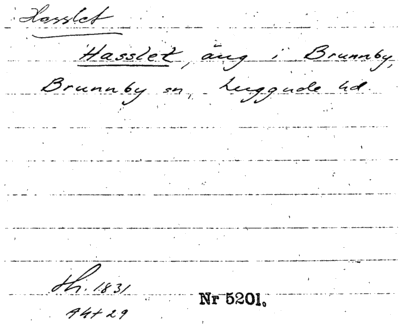 Hasslet
Hasslet, äng i Brunnby,
Brunnby sn, Luggude hd
Th. 1831
Akt 29
Nr 5201.